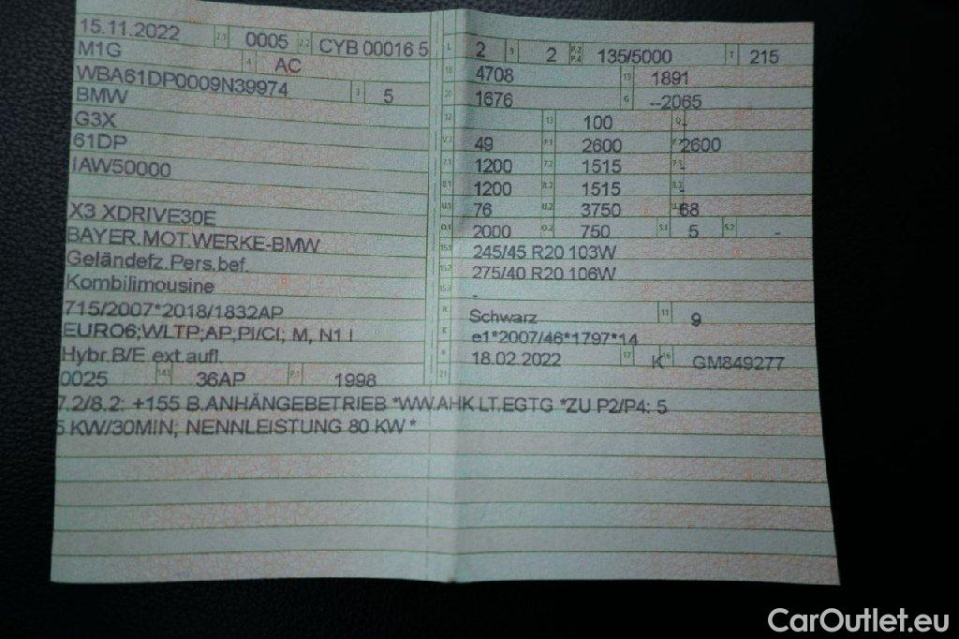 15.11.2022 2.1 0005 2.2 CYB 00016 5
M1G 4 AC
WBA61DP0009N39974 3 5
BMW
G3X
61DP
IAW50000
X3 XDRIVE30E
BAYER.MOT.WERKE-BMW
Geländefz.Pers.bef.
Kombilimousine
715/2007*2018/1832AP
EURO6;WLTP;AP;PI/CI; M, N1 I
Hybr.B/E ext.aufl.
0025 14.1 36AP P.1 1998
L 2 9 2 P.2 P.4 135/5000 T 215
18 4708 19 1891
20 1676 G --2065
12 - 13 100 Q -
V.7 49 F.1 2600 F.2 2600
7.1 1200 7.2 1515 7.3 -
8.1 1200 8.2 1515 8.3 -
U.1 76 U.2 3750 U.3 68
O.1 2000 O.2 750 S.1 5 S.2 -
15.1 245/45 R20 103W
15.2 275/40 R20 106W
15.3 -
R Schwarz 11 9
K e1*2007/46*1797*14
6 18.02.2022 17 K 16 GM849277
21
7.2/8.2: +155 B.ANHÄNGEBETRIEB *WW.AHK LT.EGTG *ZU P2/P4: 5
5 KW/30MIN; NENNLEISTUNG 80 KW *
CarOutlet.eu